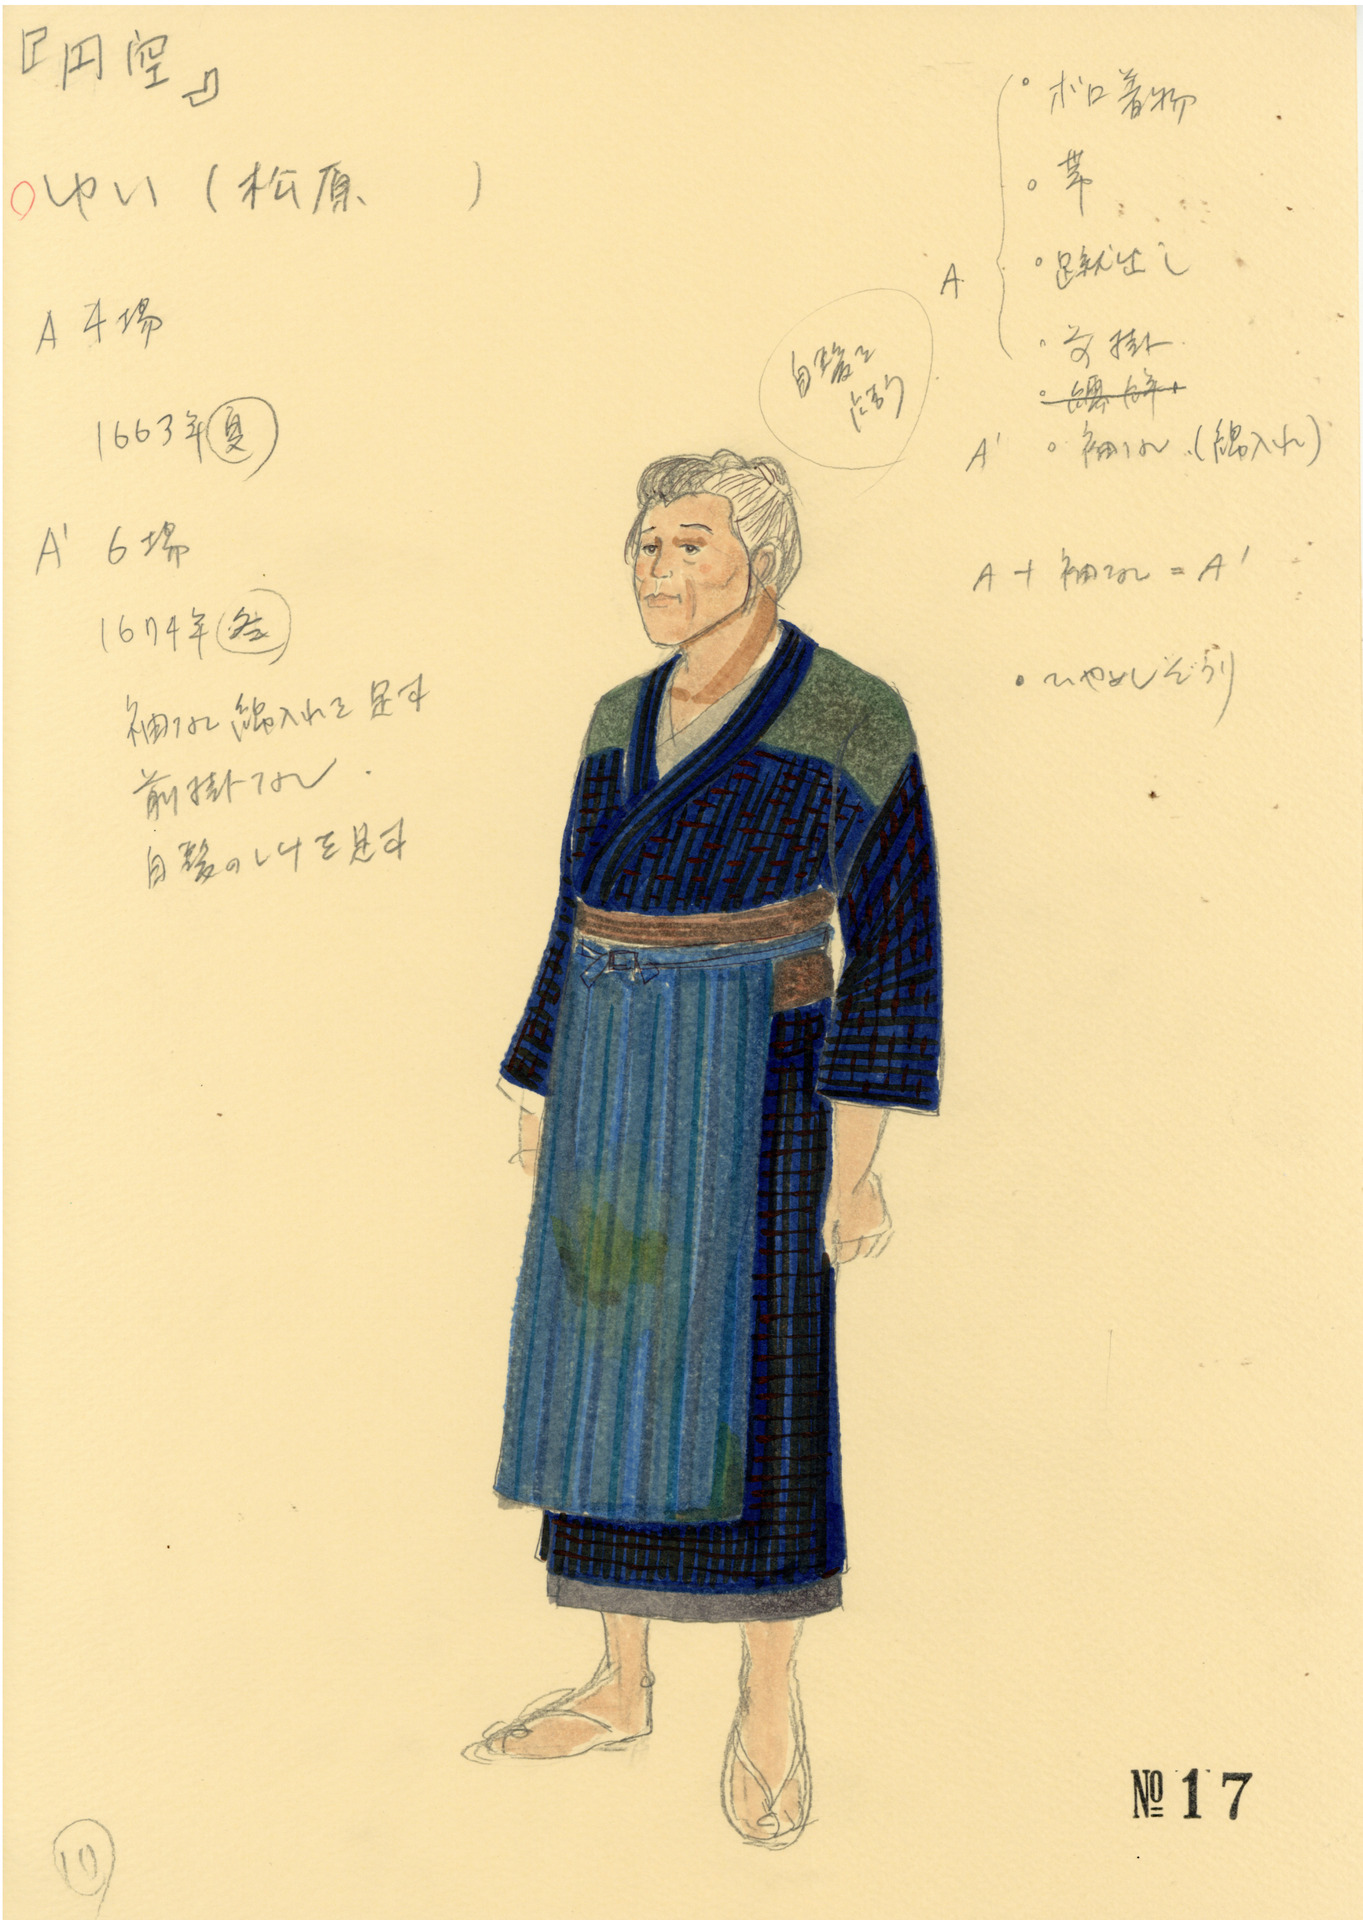 『円空』
○しやい (松原　　)
A 4場
1663年 夏
A' 6場
1674年 冬
袖なし綿入れを足す
前掛なし
白髪のシケを足す
A
・ボロ着物
・帯
・蹴出し
・前掛
A' ・袖なし(綿入れ)
A + 袖なし = A'
・ひやめしぞうり
白髪を
№ 17
10